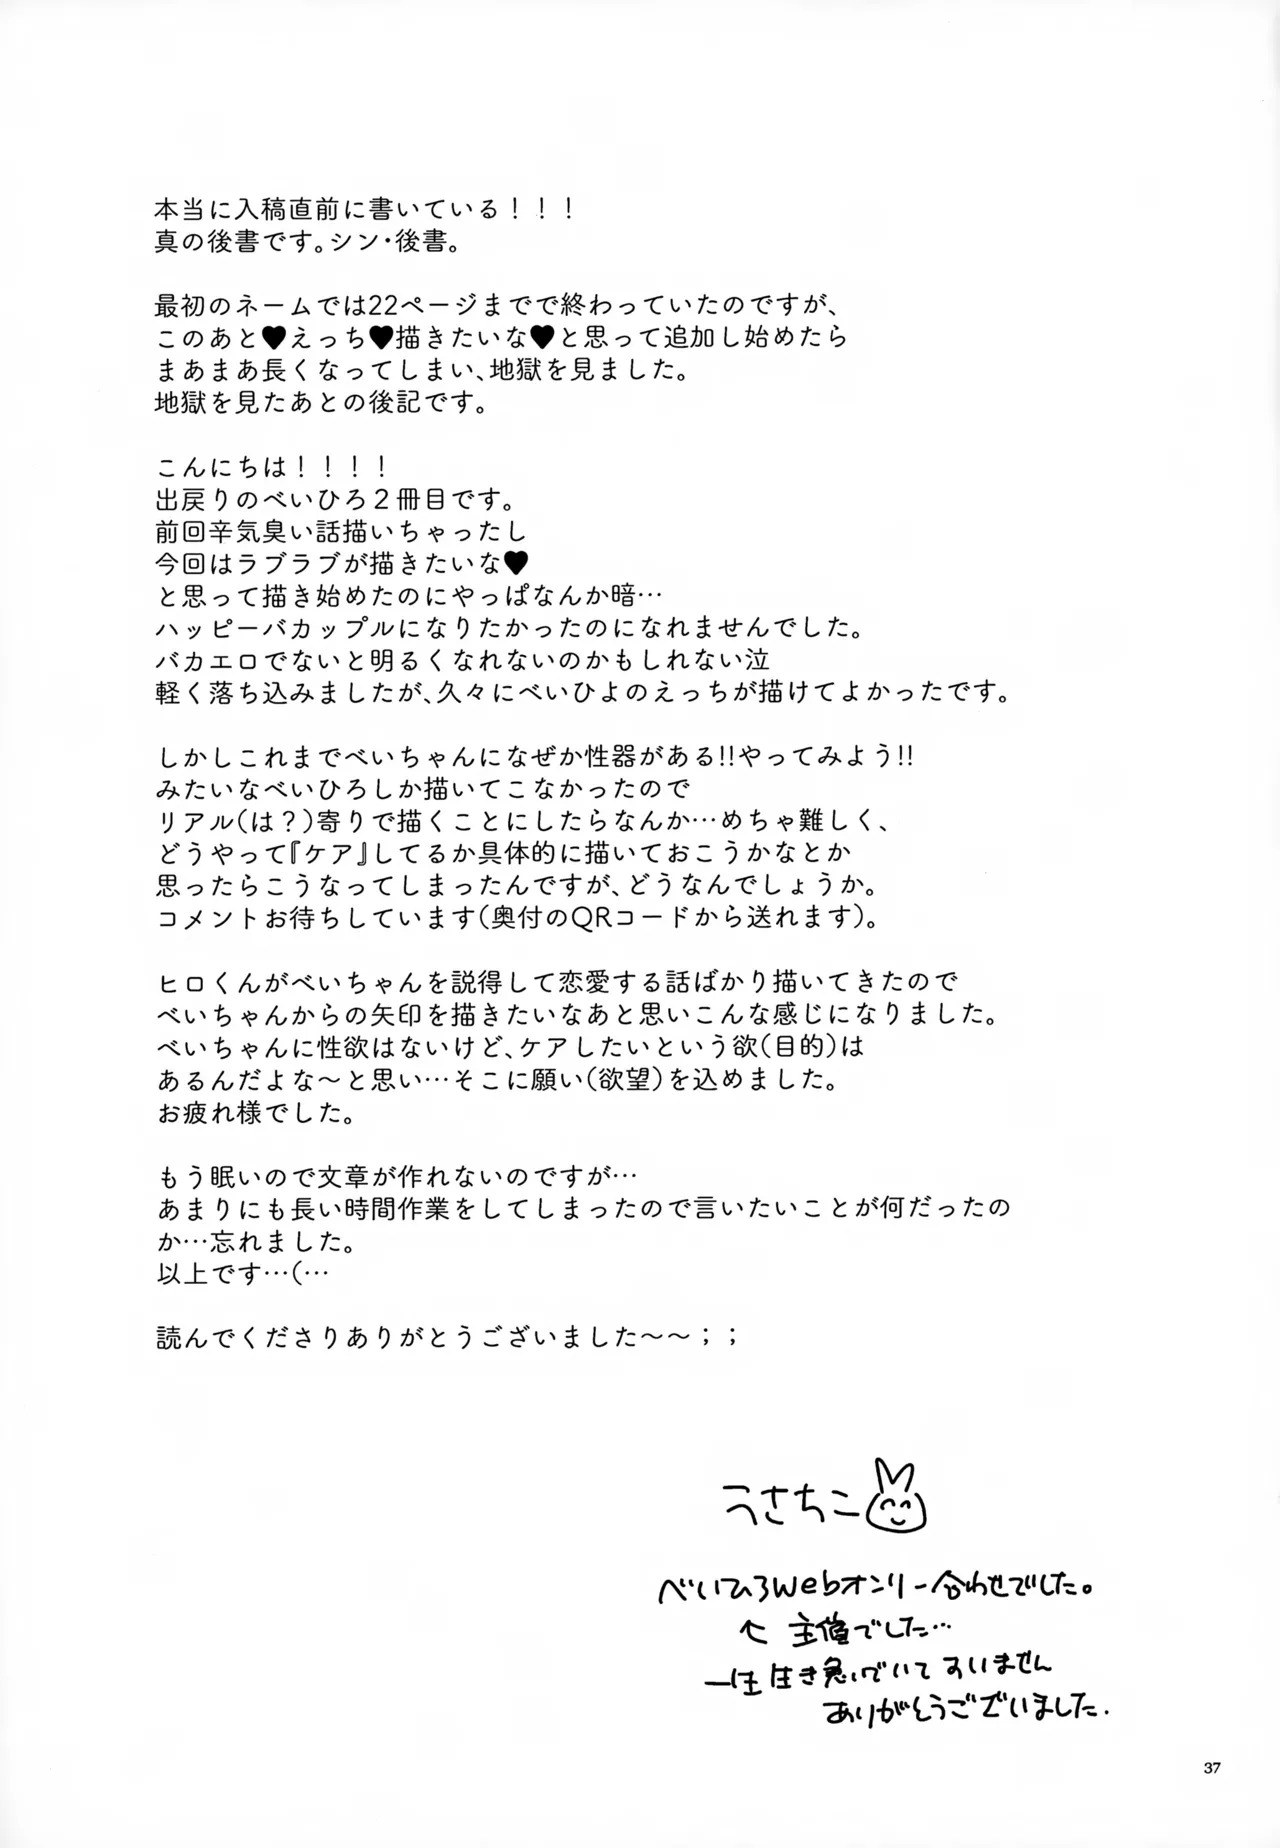 本当に入稿直前に書いている！！！
真の後書です。シン・後書。
最初のネームでは22ページまでで終わっていたのですが、
このあと♥えっち♥描きたいな♥と思って追加し始めたら
まあまあ長くなってしまい、地獄を見ました。
地獄を見たあとの後記です。
こんにちは！！！！
出戻りのべいひろ２冊目です。
前回辛気臭い話描いちゃったし
今回はラブラブが描きたいな♥
と思って描き始めたのにやっぱなんか暗…
ハッピーバカップルになりたかったのになれませんでした。
バカエロでないと明るくなれないのかもしれない泣
軽く落ち込みましたが、久々にべいひよのえっちが描けてよかったです。
しかしこれまでべいちゃんになぜか性器がある!!やってみよう!!
みたいなべいひろしか描いてこなかったので
リアル(は？)寄りで描くことにしたらなんか…めちゃ難しく、
どうやって『ケア』してるか具体的に描いておこうかなとか
思ったらこうなってしまったんですが、どうなんでしょうか。
コメントお待ちしています(奥付のQRコードから送れます)。
ヒロくんがべいちゃんを説得して恋愛する話ばかり描いてきたので
べいちゃんからの矢印を描きたいなあと思いこんな感じになりました。
べいちゃんに性欲はないけど、ケアしたいという欲(目的)は
あるんだよな〜と思い…そこに願い(欲望)を込めました。
お疲れ様でした。
もう眠いので文章が作れないのですが…
あまりにも長い時間作業をしてしまったので言いたいことが何だったの
か…忘れました。
以上です…(…
読んでくださりありがとうございました〜〜；；
うさちこ
べいひろwebオンリー合わせでした。
↑ 主催でした…
一生生き急いでいてすいません
ありがとうございました.
37